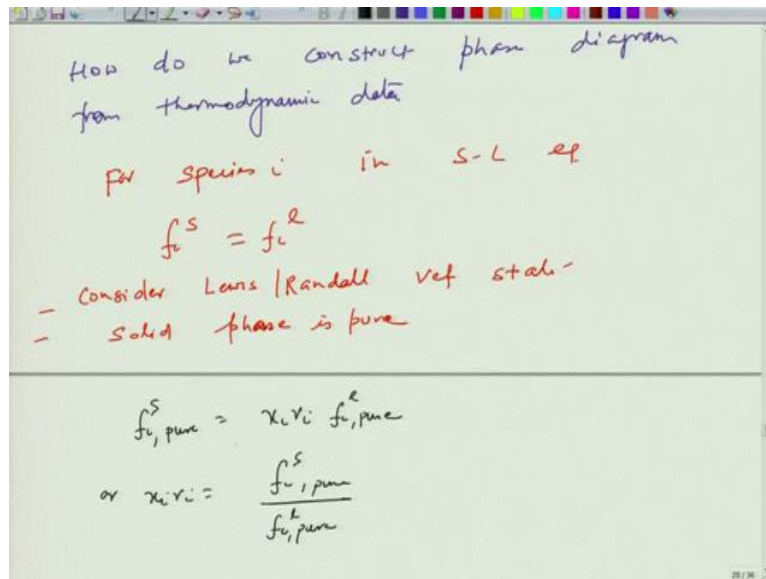 How do we construct phase diagram
from thermodynamic data
For species i in S-L eq
f_i^S = f_i^l
- Consider Lewis/Randall ref state
- Solid phase is pure
f_{i, pure}^S = x_i γ_i f_{i, pure}^l
or x_i γ_i = f_{i, pure}^S / f_{i, pure}^l
20/36